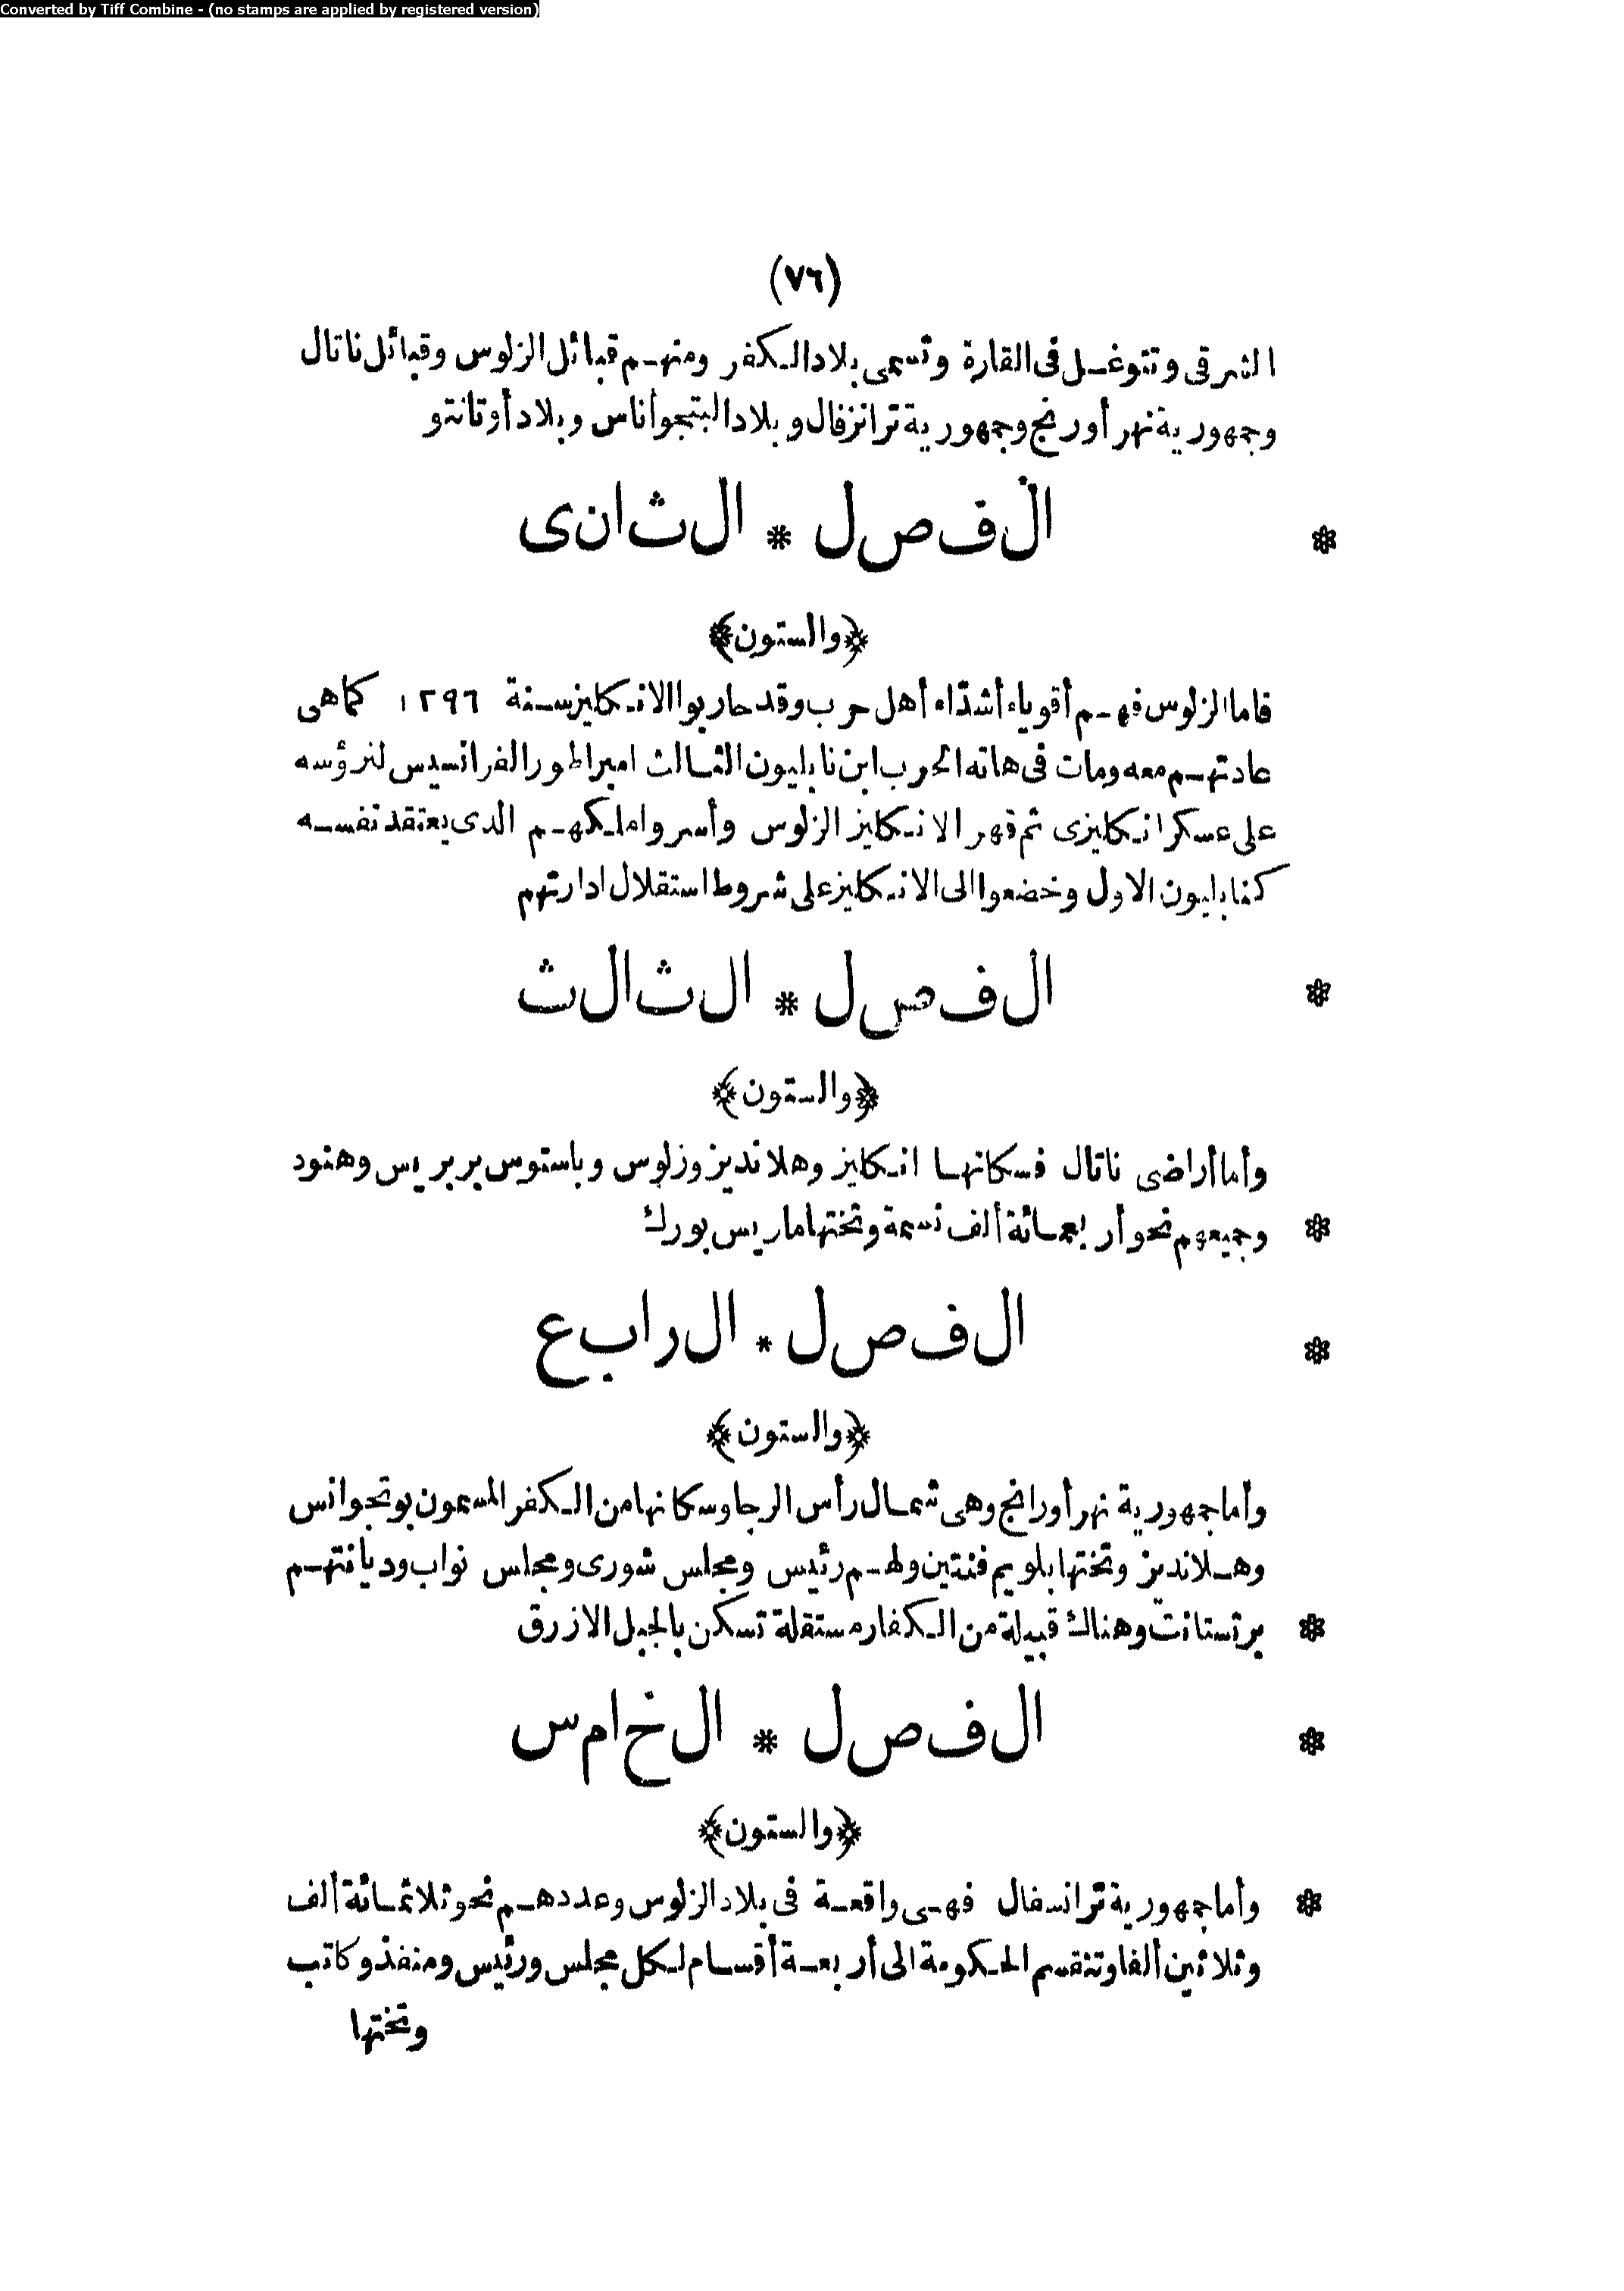 Converted by Tiff Combine - (no stamps are applied by registered version)
(٧٦)
الشرقى وتتوغل فى القارة وتسمى بلاد الكفر ومنهم قبائل الزلوس وقبائل ناتال
وجمهورية نهر أورنج وجمهورية ترانزفال وبلاد البتجوأناس وبلاد أوتانتو
* الفصل * الثانى
﴿والستون﴾
فاما الزلوس فهم أقوياء أشدّاء أهل حرب وقد حاربوا الانكليز سنة ١٢٩٦ كما هى
عادتهم معه ومات فى هاته الحرب ابن نابليون الثالث امبراطور الفرانسيس لترؤسه
على عسكر انكليزى ثم قهر الانكليز الزلوس وأسروا ملكهم الذى يعتقد نفسه
كنابليون الاول وخضعوا الى الانكليز على شروط استقلال ادارتهم
* الفصل * الثالث
﴿والستون﴾
وأما أراضى ناتال فسكانها انكليز وهلانديز وزلوس وباستوس بربريس وهنود
* وجميعهم نحو أربعمائة ألف نسمة وتختها ماريس بورك
* الفصل * الرابع
﴿والستون﴾
وأما جمهورية نهر أورانج وهى شمال رأس الرجا وسكانها من الكفر المسمون بوتجوانس
وهلانديز وتختها بلويم فنتين ولهم رئيس ومجلس شورى ومجلس نواب وديانتهم
* برتستانت وهناك قبيلة من الكفار مستقلة تسكن بالجبل الازرق
* الفصل * الخامس
﴿والستون﴾
* وأما جمهورية ترانسفال فهى واقعة فى بلاد الزلوس وعددهم نحو ثلاثمائة ألف
وثلاثين ألفا وتنقسم الحكومة الى أربعة أقسام لكل مجلس ورئيس ومنفذ وكاتب
وتختها